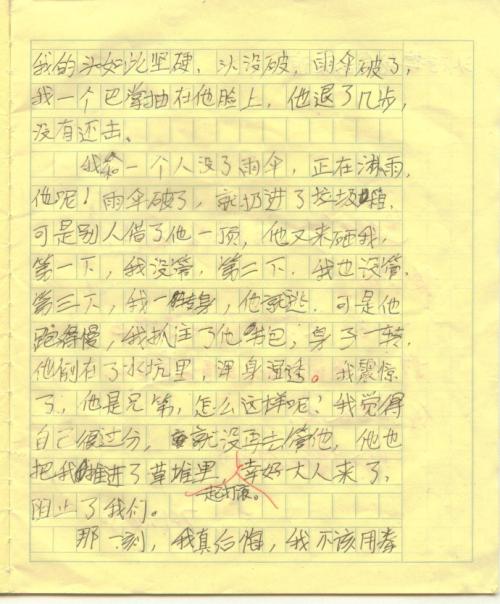 我的头如此坚硬、头没破，雨伞破了，
我一个巴掌抽在他脸上，他退了几步，
没有还击。
我一个人没了雨伞，正在淋雨，
他呢！雨伞破了，就扔进了垃圾箱，
可是别人借了他一顶，他又来砸我，
第一下，我没管，第二下，我也没管，
第三下，我一转身，他就逃，可是他
跑得慢，我抓住了他书包，身子一转，
他倒在了水坑里，浑身湿透。我震惊
了，他是兄弟，怎么这样呢？我觉得
自己很过分，就没再去管他，他也
把我推进了草堆里，幸好大人来了，
阻止了我们。
那一刻，我真后悔，我不该用拳